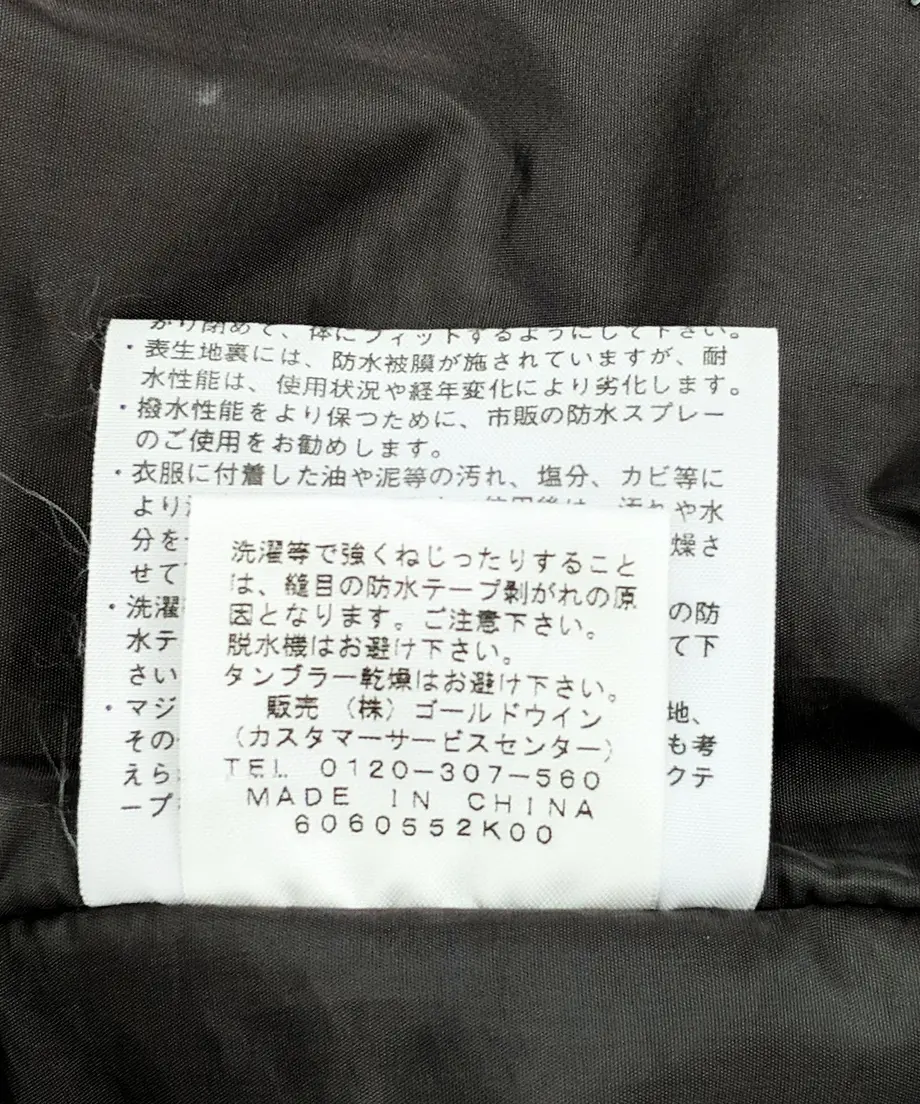 がり閉めて、体にフィットするようにして下さい。
・表生地裏には、防水被膜が施されていますが、耐
水性能は、使用状況や経年変化により劣化します。
・撥水性能をより保つために、市販の防水スプレー
のご使用をお勧めします。
・衣服に付着した油や泥等の汚れ、塩分、カビ等に
より 使用後は、汚れや水
分を 燥さ
せて
・洗濯 の防
水テ て下
さい
・マジ 地、
その も考
えら クテ
ープ
洗濯等で強くねじったりすること
は、縫目の防水テープ剥がれの原
因となります。ご注意下さい。
脱水機はお避け下さい。
タンブラー乾燥はお避け下さい。
販売 (株) ゴールドウイン
(カスタマーサービスセンター)
TEL 0120-307-560
MADE IN CHINA
6060552K00